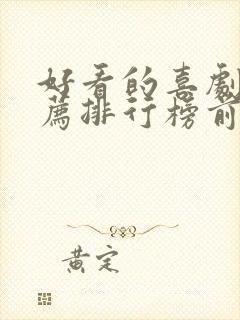 好看的喜劇
薦排行榜前
黃定